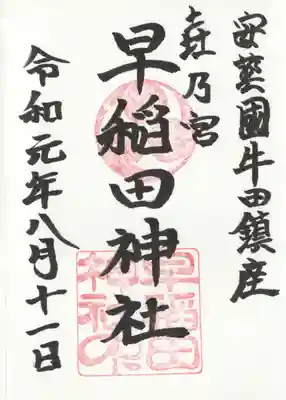 安藝國牛田鎮座
㐂乃宮
早稲田神社
令和元年八月十一日
早稲田神社